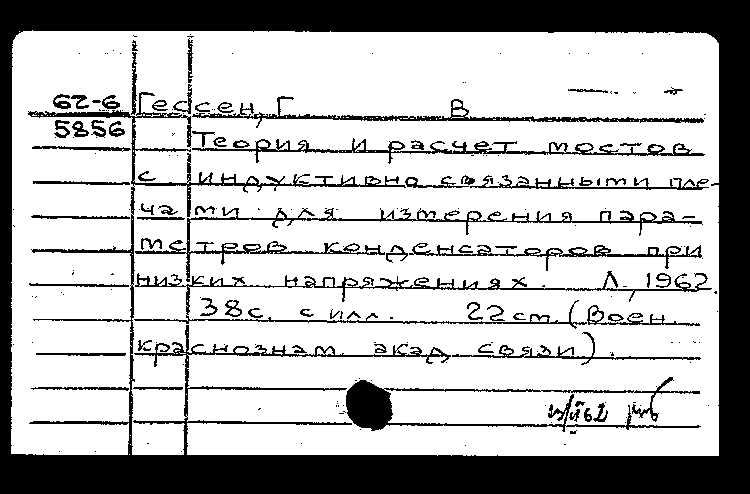 62-6 Гессен, Г В
5856 Теория и расчет мостов
с индуктивно связанными пле-
чами для измерения пара-
метров конденсаторов при
низких напряжениях. Л, 1962.
38с. с илл. 22 cm. (Воен.
краснознам. акад. связи).